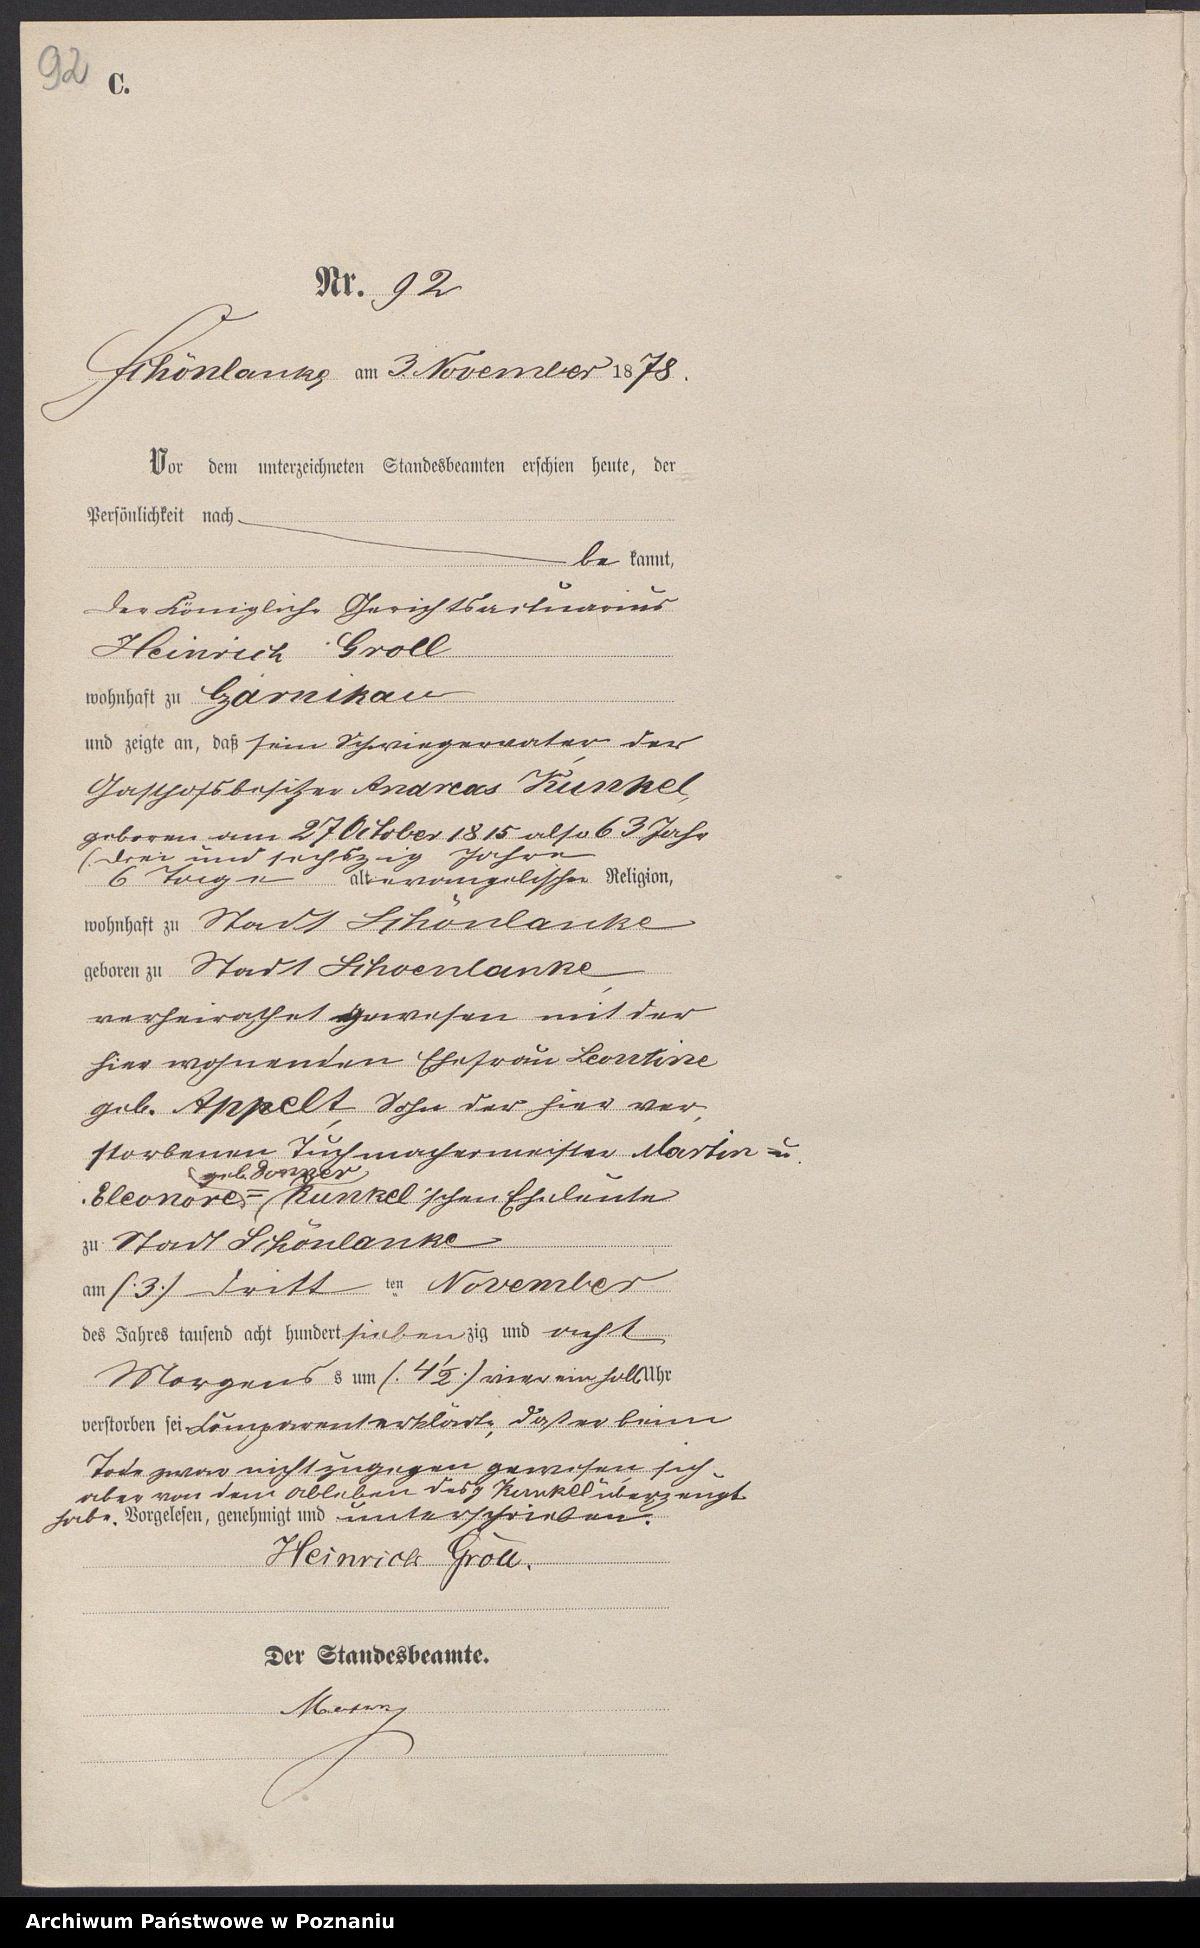 92
C.
Nr. 92
Schönlanke am 3. November 1878.
Vor dem unterzeichneten Standesbeamten erschien heute, der
Persönlichkeit nach
be kannt,
der Königliche Gerichtsactuarius
Heinrich Groll
wohnhaft zu Czarnikau
und zeigte an, daß sein Schwiegervater der
Gasthofsbesitzer Andreas Kunkel,
geboren am 27 October 1815 also 63 Jahr
(drei und sechszig Jahre
6 Tage alt evangelischer Religion,
wohnhaft zu Stadt Schönlanke
geboren zu Stadt Schoenlanke,
verheirathet gewesen mit der
hier wohnenden Ehefrau Leontine
geb. Appelt, Sohn der hier ver
storbenen Tuchmachermeister Martin u
geb. Donner
Eleonore = Kunkel'schen Eheleute
zu Stadt Schönlanke
am (:3:) dritt ten November
des Jahres tausend acht hundert sieben zig und acht
Morgens s um (:4½:) vier ein halb Uhr
verstorben sei Comparent erklärte, daß er beim
Tode zwar nicht zugegen gewesen, sich
aber von dem Ableben des Kunkel überzeugt
habe. Vorgelesen, genehmigt und unterschrieben.
Heinrich Groll.
Der Standesbeamte.
Archiwum Państwowe w Poznaniu